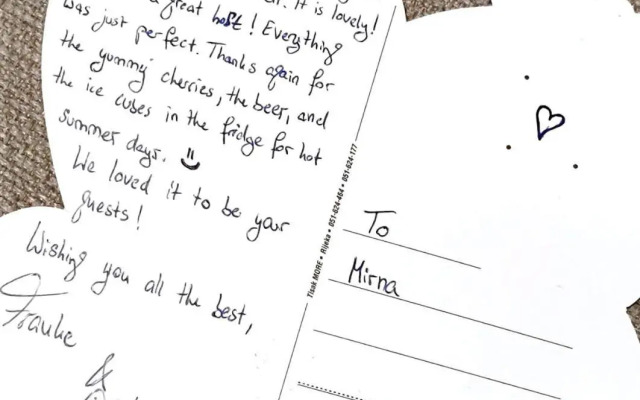 It is lovely!
great host! Everything
was just perfect. Thanks again for
the yummy cherries, the beer, and
the ice cubes in the fridge for hot
summer days.
We loved it to be your
guests!
Wishing you all the best,
Frauke
&
Tisak MORE • Rijeka • 051-624-464 • 051-624-177
To
Mirna